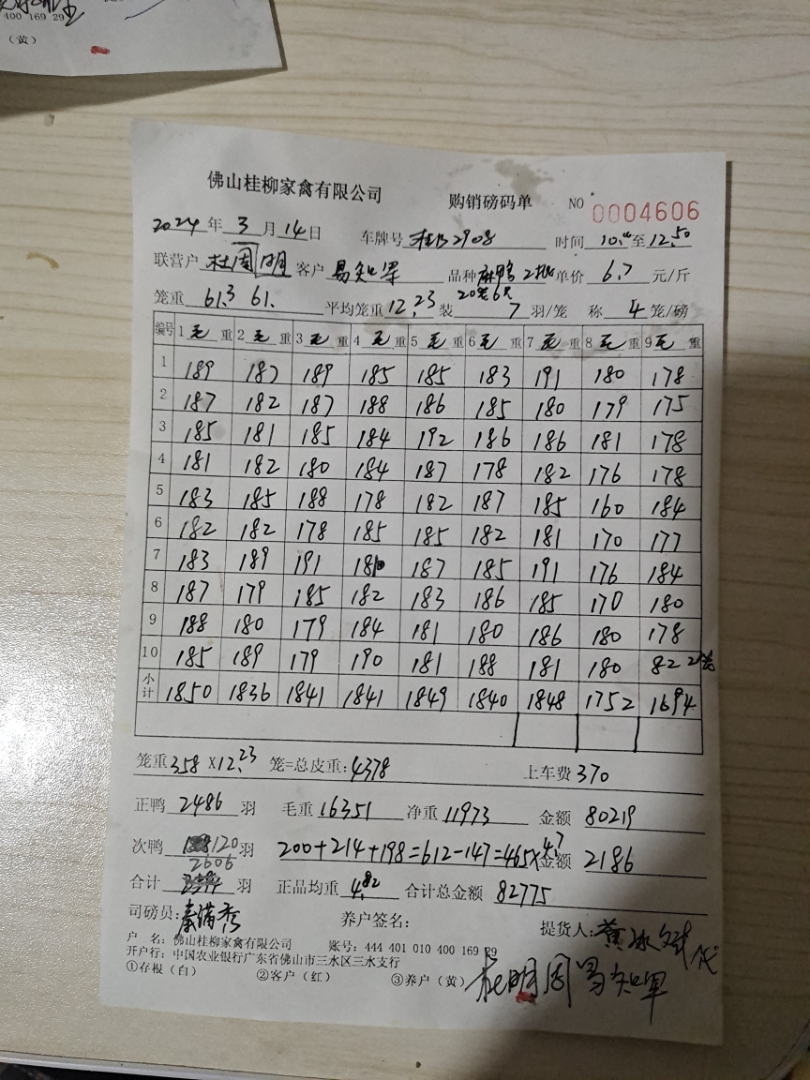 400 169 29
（黄）
佛山桂柳家禽有限公司 购销磅码单 NO 0004606
2024年 3 月 14 日 车牌号 桂B2908 时间 10.40至12.50
联营户 杜周明 客户 易知军 品种 麻鸭 2批 单价 6.7 元/斤
笼重 61.3 61. 平均笼重 12.23 装 20笼6只 7 羽/笼 称 4 笼/磅
编号 1 毛重 2 毛重 3 毛重 4 毛重 5 毛重 6 毛重 7 毛重 8 毛重 9 毛重
1 189 187 189 185 185 183 191 180 178
2 187 182 187 188 186 185 180 179 175
3 185 181 185 184 192 186 186 181 178
4 181 182 180 184 187 178 182 176 178
5 183 185 188 178 182 187 185 160 184
6 182 182 178 185 185 182 181 170 177
7 183 189 191 181 187 185 191 176 184
8 187 179 185 182 183 186 185 170 180
9 188 180 179 184 181 180 186 180 178
10 185 189 179 190 181 188 181 180 82 2笼
小计 1850 1836 1841 1841 1849 1840 1848 1752 1694
笼重 358 X12.23 笼=总皮重: 4378 上车费 370
正鸭 2486 羽 毛重 16351 净重 11973 金额 80219
次鸭 120 羽 200+214+198=612-147=465×4.7 金额 2186
合计 2606 羽 正品均重 4.82 合计总金额 82775
司磅员: 秦满秀 养户签名: 提货人: 黄冰 代
户 名: 佛山桂柳家禽有限公司 账号: 444 401 010 400 169 29
开户行: 中国农业银行广东省佛山市三水区三水支行
①存根（白） ②客户（红） ③养户（黄） 杜明周 易知军